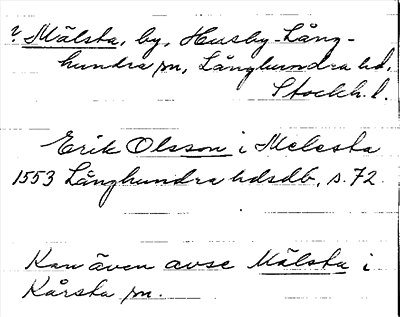 ? Mälsta, by, Husby-Lång-
hundra sn, Långhundra hd,
Stockh. l.
Erik Olsson i Melesta
1553 Långhundra hdsdb, s. 72.
Kan även avse Mälsta i
Kårsta sn.